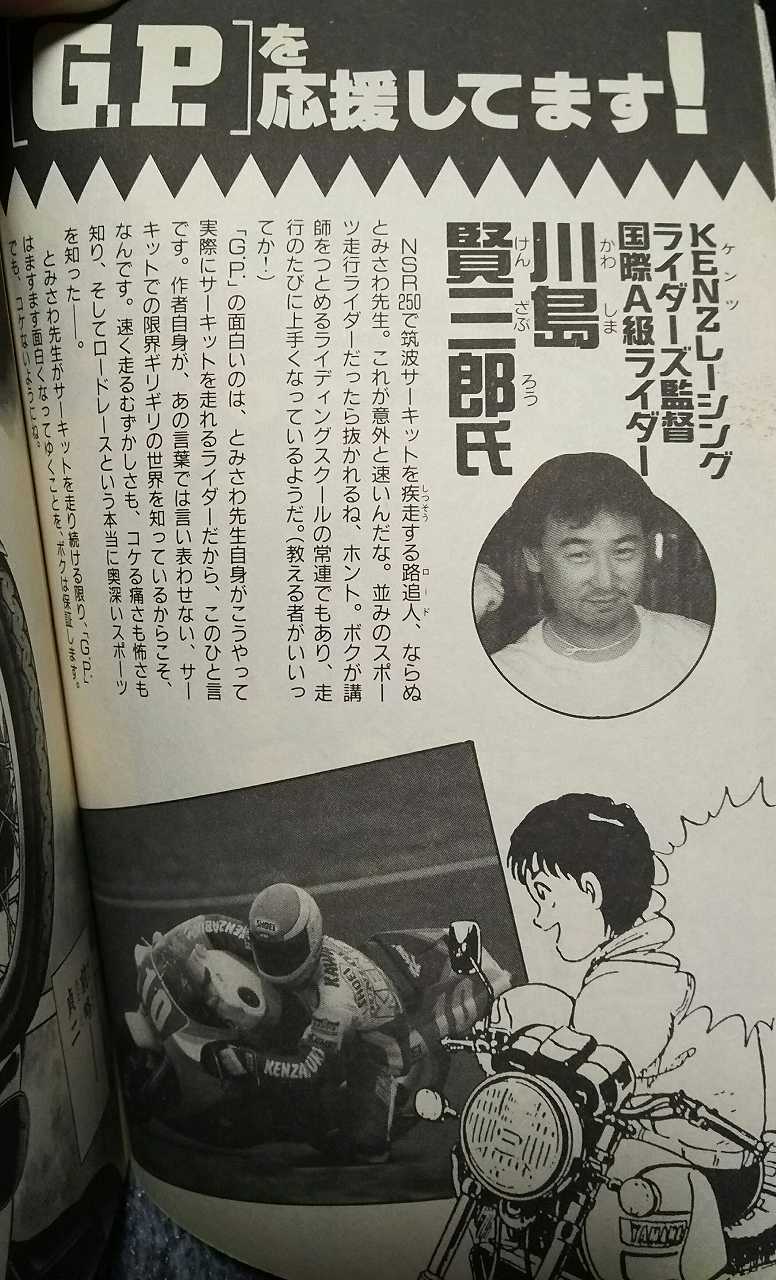 [G.P.]を
応援してます!
KENZレーシング
ケンツ
ライダーズ監督
国際A級ライダー
川島
かわしま
賢三郎氏
けんざぶろう
NSR250で筑波サーキットを疾走する路追人、ならぬ
しっそう
ロード
とみさわ先生。これが意外と速いんだな。並みのスポー
ツ走行ライダーだったら抜かれるね、ホント。ボクが講
師をつとめるライディングスクールの常連でもあり、走
行のたびに上手くなっているようだ。(教える者がいいっ
てか!)
「G.P.」の面白いのは、とみさわ先生自身がこうやって
実際にサーキットを走れるライダーだから、このひと言
です。作者自身が、あの言葉では言い表わせない、サー
キットでの限界ギリギリの世界を知っているからこそ、
なんです。速く走るむずかしさも、コケる痛さも怖さも
知り、そしてロードレースという本当に奥深いスポーツ
を知った──。
とみさわ先生がサーキットを走り続ける限り、「G.P.」
はますます面白くなってゆくことを、ボクは保証します。
でも、コケないようにね。
SHOEI
KENZABU
KAWA
SHOEI
10
KENZ
YAMAHA
貞二